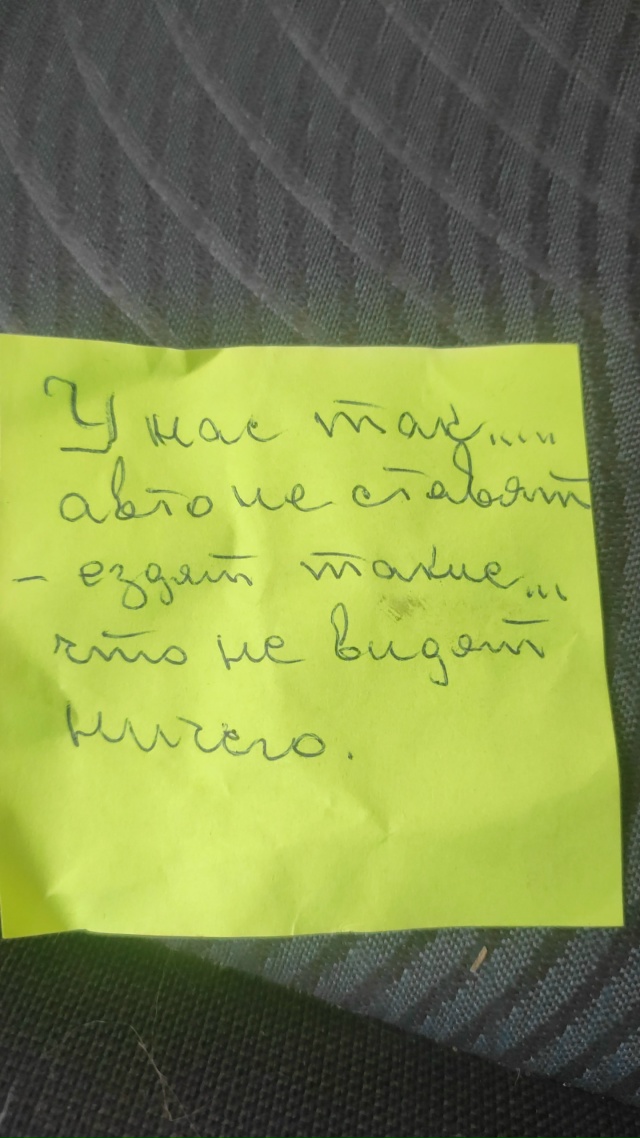 У нас так.....
авто не ставят
- ездят такие...
что не видят
ничего.